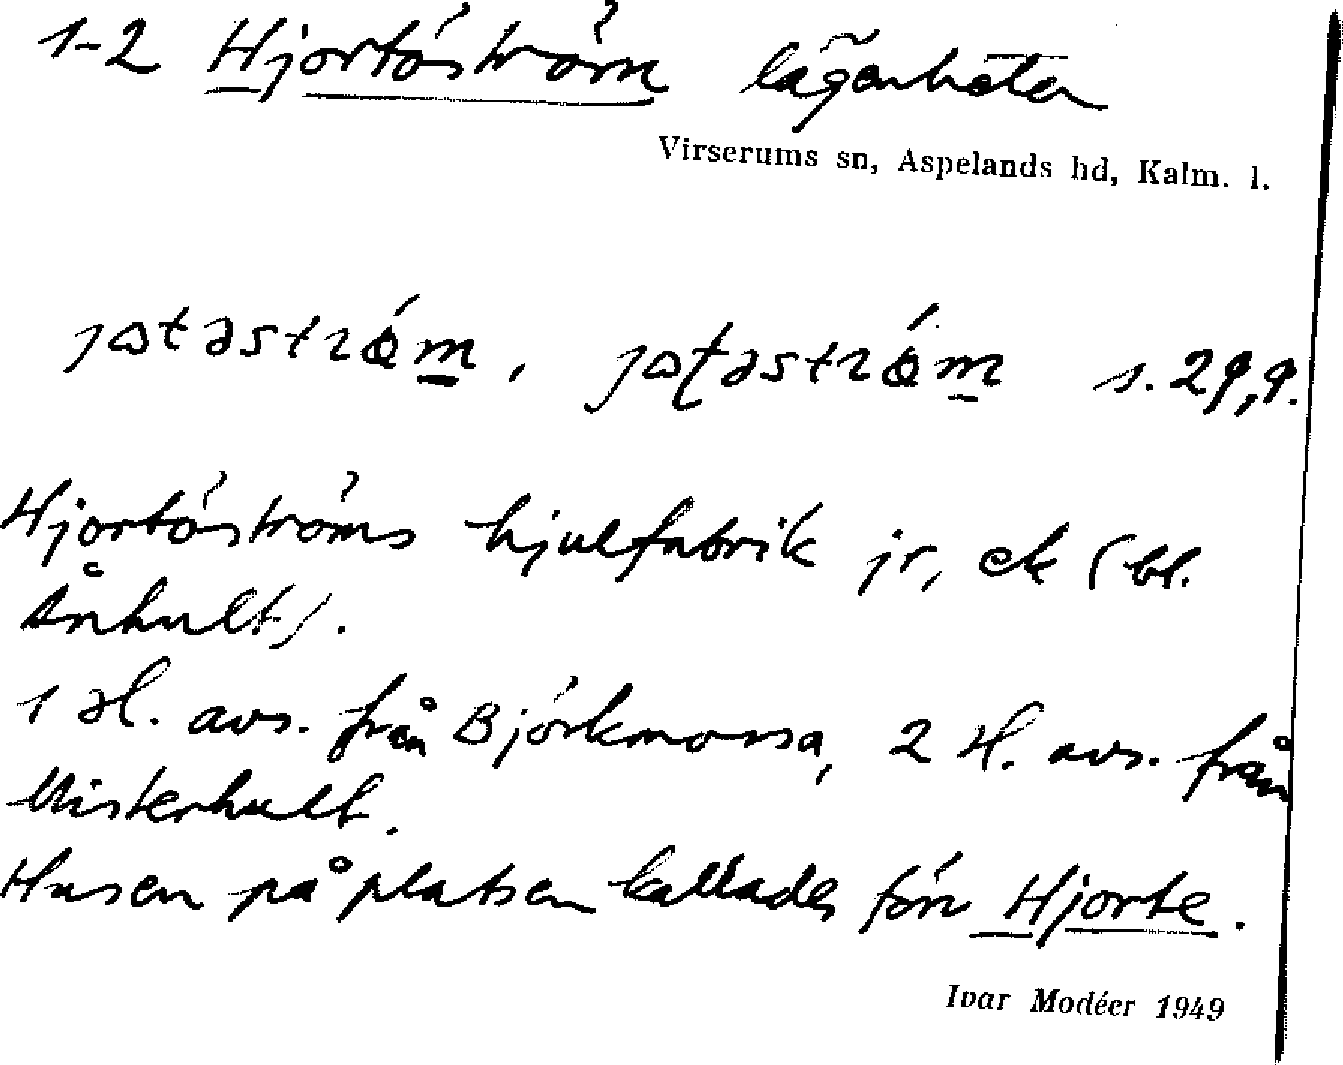 1-2 Hjortöström lägenheter
Virserums sn, Aspelands hd, Kalm. l.
Hjortöströms hjulfabrik jr, ek (bl.
Ånhult).
1 Hl. avs. från Björkmossa, 2 Hl. avs. från
Misterhult.
Husen på platsen kallades förr Hjorte.
Ivar Modéer 1949